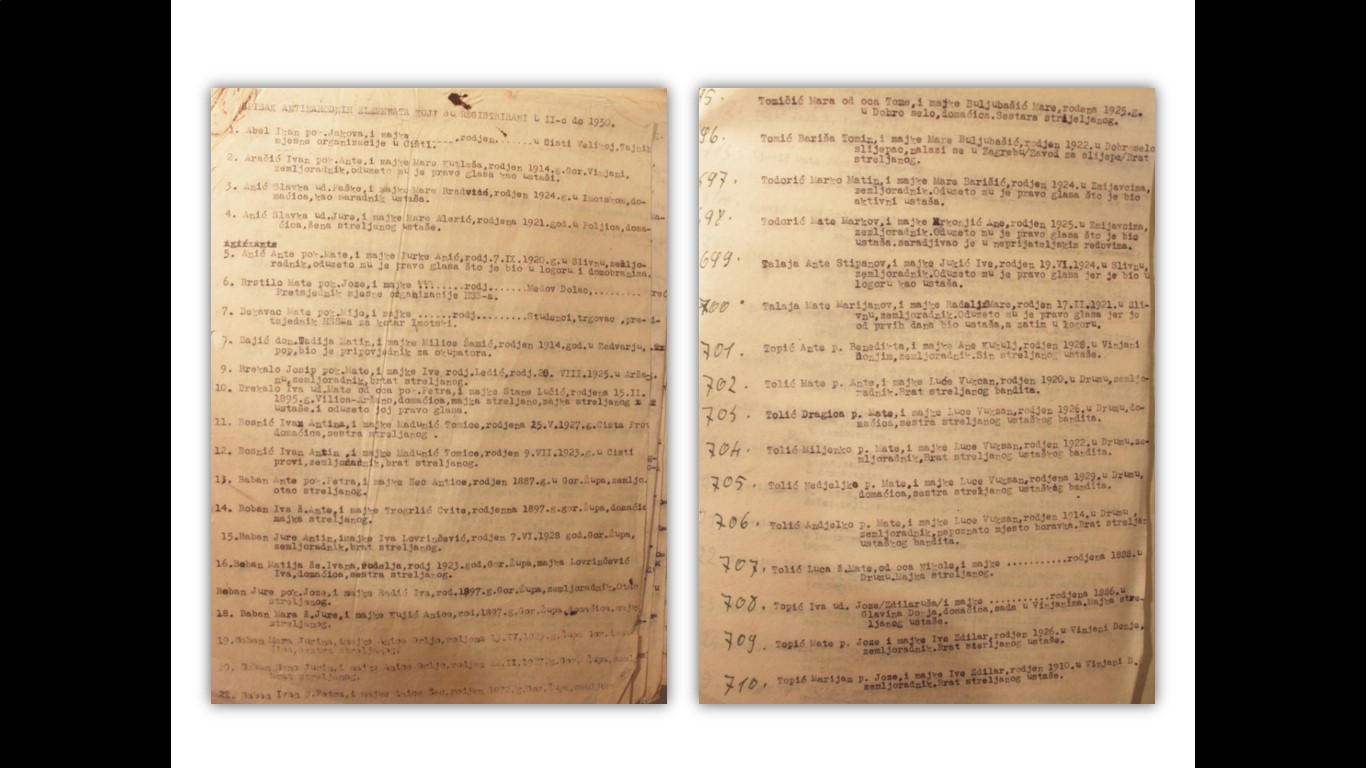 SPISAK ANTINARODNIH ELEMENATA KOJI SU REGISTRIRANI U II-o do 1950.
1. Abel Ikan pok.Jakova,i majke ........,rodjen.......u Cisti Velikoj,Tajnik
mjesne organizacije u Cisti.
2. Aračić Ivan pok.Ante,i majke Mare Kutleša,rodjen 1914.g.Gor.Vinjani,
zemljoradnik,oduzeto mu je pravo glasa kao ustaši.
3. Anić Slavka ud.Paško,i majke Mare Bradvić,rodjen 1924.g.u Imotskom,do-
maćica,kao suradnik ustaša.
4. Anić Slavka ud.Jure,i majke Mare Alerić,rodjena 1921.god.u Poljica,doma-
ćica,žena streljanog ustaše.
5. Anić Ante pok.Mate,i majke Jurke Anić,rodj.7.IX.1920.g.u Slivnu,zemljo-
radnik,oduzeto mu je pravo glasa što je bio u logoru i domobranima.
6. Brstilo Mate pok.Joze,i majke ......rodj......Medov Dolac,........
Pretsjednik mjesne organizacije HSS-a.
7. Dekavac Mate pok.Mije,i majke ......rodj.........Studenci,trgovac ,pre-
tsjednik HSS-a za kotar Imotski.
7. Bajić don.Tadija Matin,i majke Milice Šamić,rodjen 1914.god.u Zadvarju,
pop,bio je pripovjednik za okupatora.
9. Brekalo Josip pok.Mate,i majke Ive,rodj.Ledić,rodj.28. VIII.1925.u Arža-
nu,zemljoradnik,brat streljanog.
10. Brekalo Iva ud.Mate od oca pok.Petra,i majke Stane Lučić,rodjena 15.II.
1895.g.Vilica-Aržano,domaćica,majka streljano,majka streljanog
ustaše,i oduzeto joj pravo glasa.
11. Bosnić Ivan Antina,i majke Madunić Tomice,rodjena 15.V.1927.g.Cista Prov
domaćica,sestra streljanog .
12. Bosnić Ivan Antin ,i majke Madunić Tomice,rodjen 9.VII.1923.g.u Cisti
provi,zemljoradnik,brat streljanog.
13. Baban Ante pok.Petra,i majke Zec Antice,rodjen 1887.g.u Gor.Župa,zemljo.
otac streljanog.
14. Boban Iva ž.Ante,i majke Trogrlić Cvite,rodjenna 1897.g.gor.Župa,domaćic
majka streljanog.
15.Baban Jure Antin,imajke Iva Lovrinčević,rodjen 7.VI.1928 god.Gor.Župa,
zemljoradnik,brat streljanog.
16.Boban Matija že.Ivana,rodj 1923.god.Gor.Župa,majka Lovrinčević
Iva,domaćica,sestra streljanog.
Baban Jure pok.Joze,i majke Radić Iva,rod.1897.g.Gor.Župa,zemljoradnik,Otac
streljanog.
18. Baban Mara ž.Jure,i majke Vujić Anice,roj.1897.g.Gor.Župa,domaćica,majk
streljanog.
19.Baban Mara Jurina,i majke Anice
sestra streljanog.
20. Baban Jurin,i majke Anice
brat streljanog.
21. Baban Ivan P.Petra,i majke Anice Zec,rodjen 1873.g.Gor.Župa,
95. Tomičić Mara od oca Tome,i majke Buljubašić Mare,rođena 1925.g.
u Dobro selo,domaćica.Sestara streljanog.
96. Tomić Bariša Tomin,i majke Mare Buljubašić,rodjen 1922.u Dobroselo
slijepac,nalazi se u Zagrebu/Zavod za slijepe/Brat
streljanog.
697. Todorić Marko Matin,i majke Mare Baričić,rodjen 1924.u Zmijavcima,
zemljoradnik.Oduzeto mu je pravo glasa što je bio
aktivni ustaša.
698. Todorić Mate Markov,i majke Mrkonjić Ane,rodjen 1925.u Zmijavcima,
zemljoradnik.Oduzeto mu je pravo glasa što je bio
ustaša.saradjivao je u neprijateljskim redovima.
699. Talaja Ante Stipanov,i majke Jukić Ive,rodjen 19.VI.1924.u Slivnu,
zemljoradnik.Oduzeto mu je pravo glasa jer je bio u
logoru kao ustaša.
700. Talaja Mate Marijanov,i majke Radalj Mare,rodjen 17.II.1921.u Sli-
vnu,zemljoradnik.Oduzeto mu je pravo glasa jer je
od prvih dana bio ustaša,a zatim u logoru.
701. Topić Ante p. Benedikta,i majke Ane Kukulj,rodjen 1928.u Vinjani
Donjim,zemljoradnik.Sin streljanog ustaše.
702. Tolić Mate p. Ante,i majke Luće Vukcan,rodjen 1920.u Drumu,zemljo-
radnik.Brat streljanog bandita.
703. Tolić Dragica p. Mate,i majke Luce Vuksan,rodjen 1926.u Drumu,do-
maćica,sestra streljanog ustaškog bandita.
704. Tolić Miljenko p. Mate,i majke Luce Vuksan,rodjen 1922.u Drumu,ze-
mljoradnik,Brat streljanog ustaškog bandita.
705. Tolić Nedjeljko p. Mate,i majke Luce Vuksan,rodjen 1929.u Drumu,
domaćica,sestra streljanog ustaškog bandita.
706. Tolić Andjelko p. Mate,i majke Luce Vuksan,rodjen 1914.u Drumu ,
zemljoradnik,nepoznato mjesto boravka.Brat streljan
ustaškog bandita.
707. Tolić Luca ž.Mate,od oca Nikole,i majke ..........rodjena 1888.u
Drumu.Majka streljanog.
708. Topić Iva ud. Joze/Zdilaruša/i majke ..........rodjena 1886.u
Glavina Donja,domaćica,sada u Vinjanima.Majka stre-
ljanog ustaše.
709. Topić Mate p. Joze i majke Ive Zdilar,rodjen 1926.u Vinjani Donje,
zemljoradnik.Brat sterljanog ustaše.
710. Topić Marijan p. Joze,i majke Ive Zdilar,rodjen 1910.u Vinjani D.
zemljoradnik.Brat streljanog ustaše.